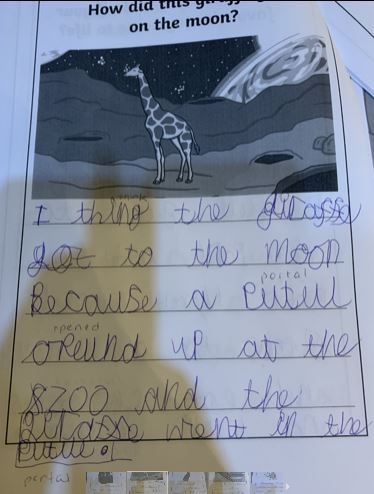 How did this giraffe
on the moon?
I thing the giraffe
think
got to the moon
portal
Because a Putul
opened
oPeund up at the
8Zoo and the
Giraffe went in the
Putul.
portal